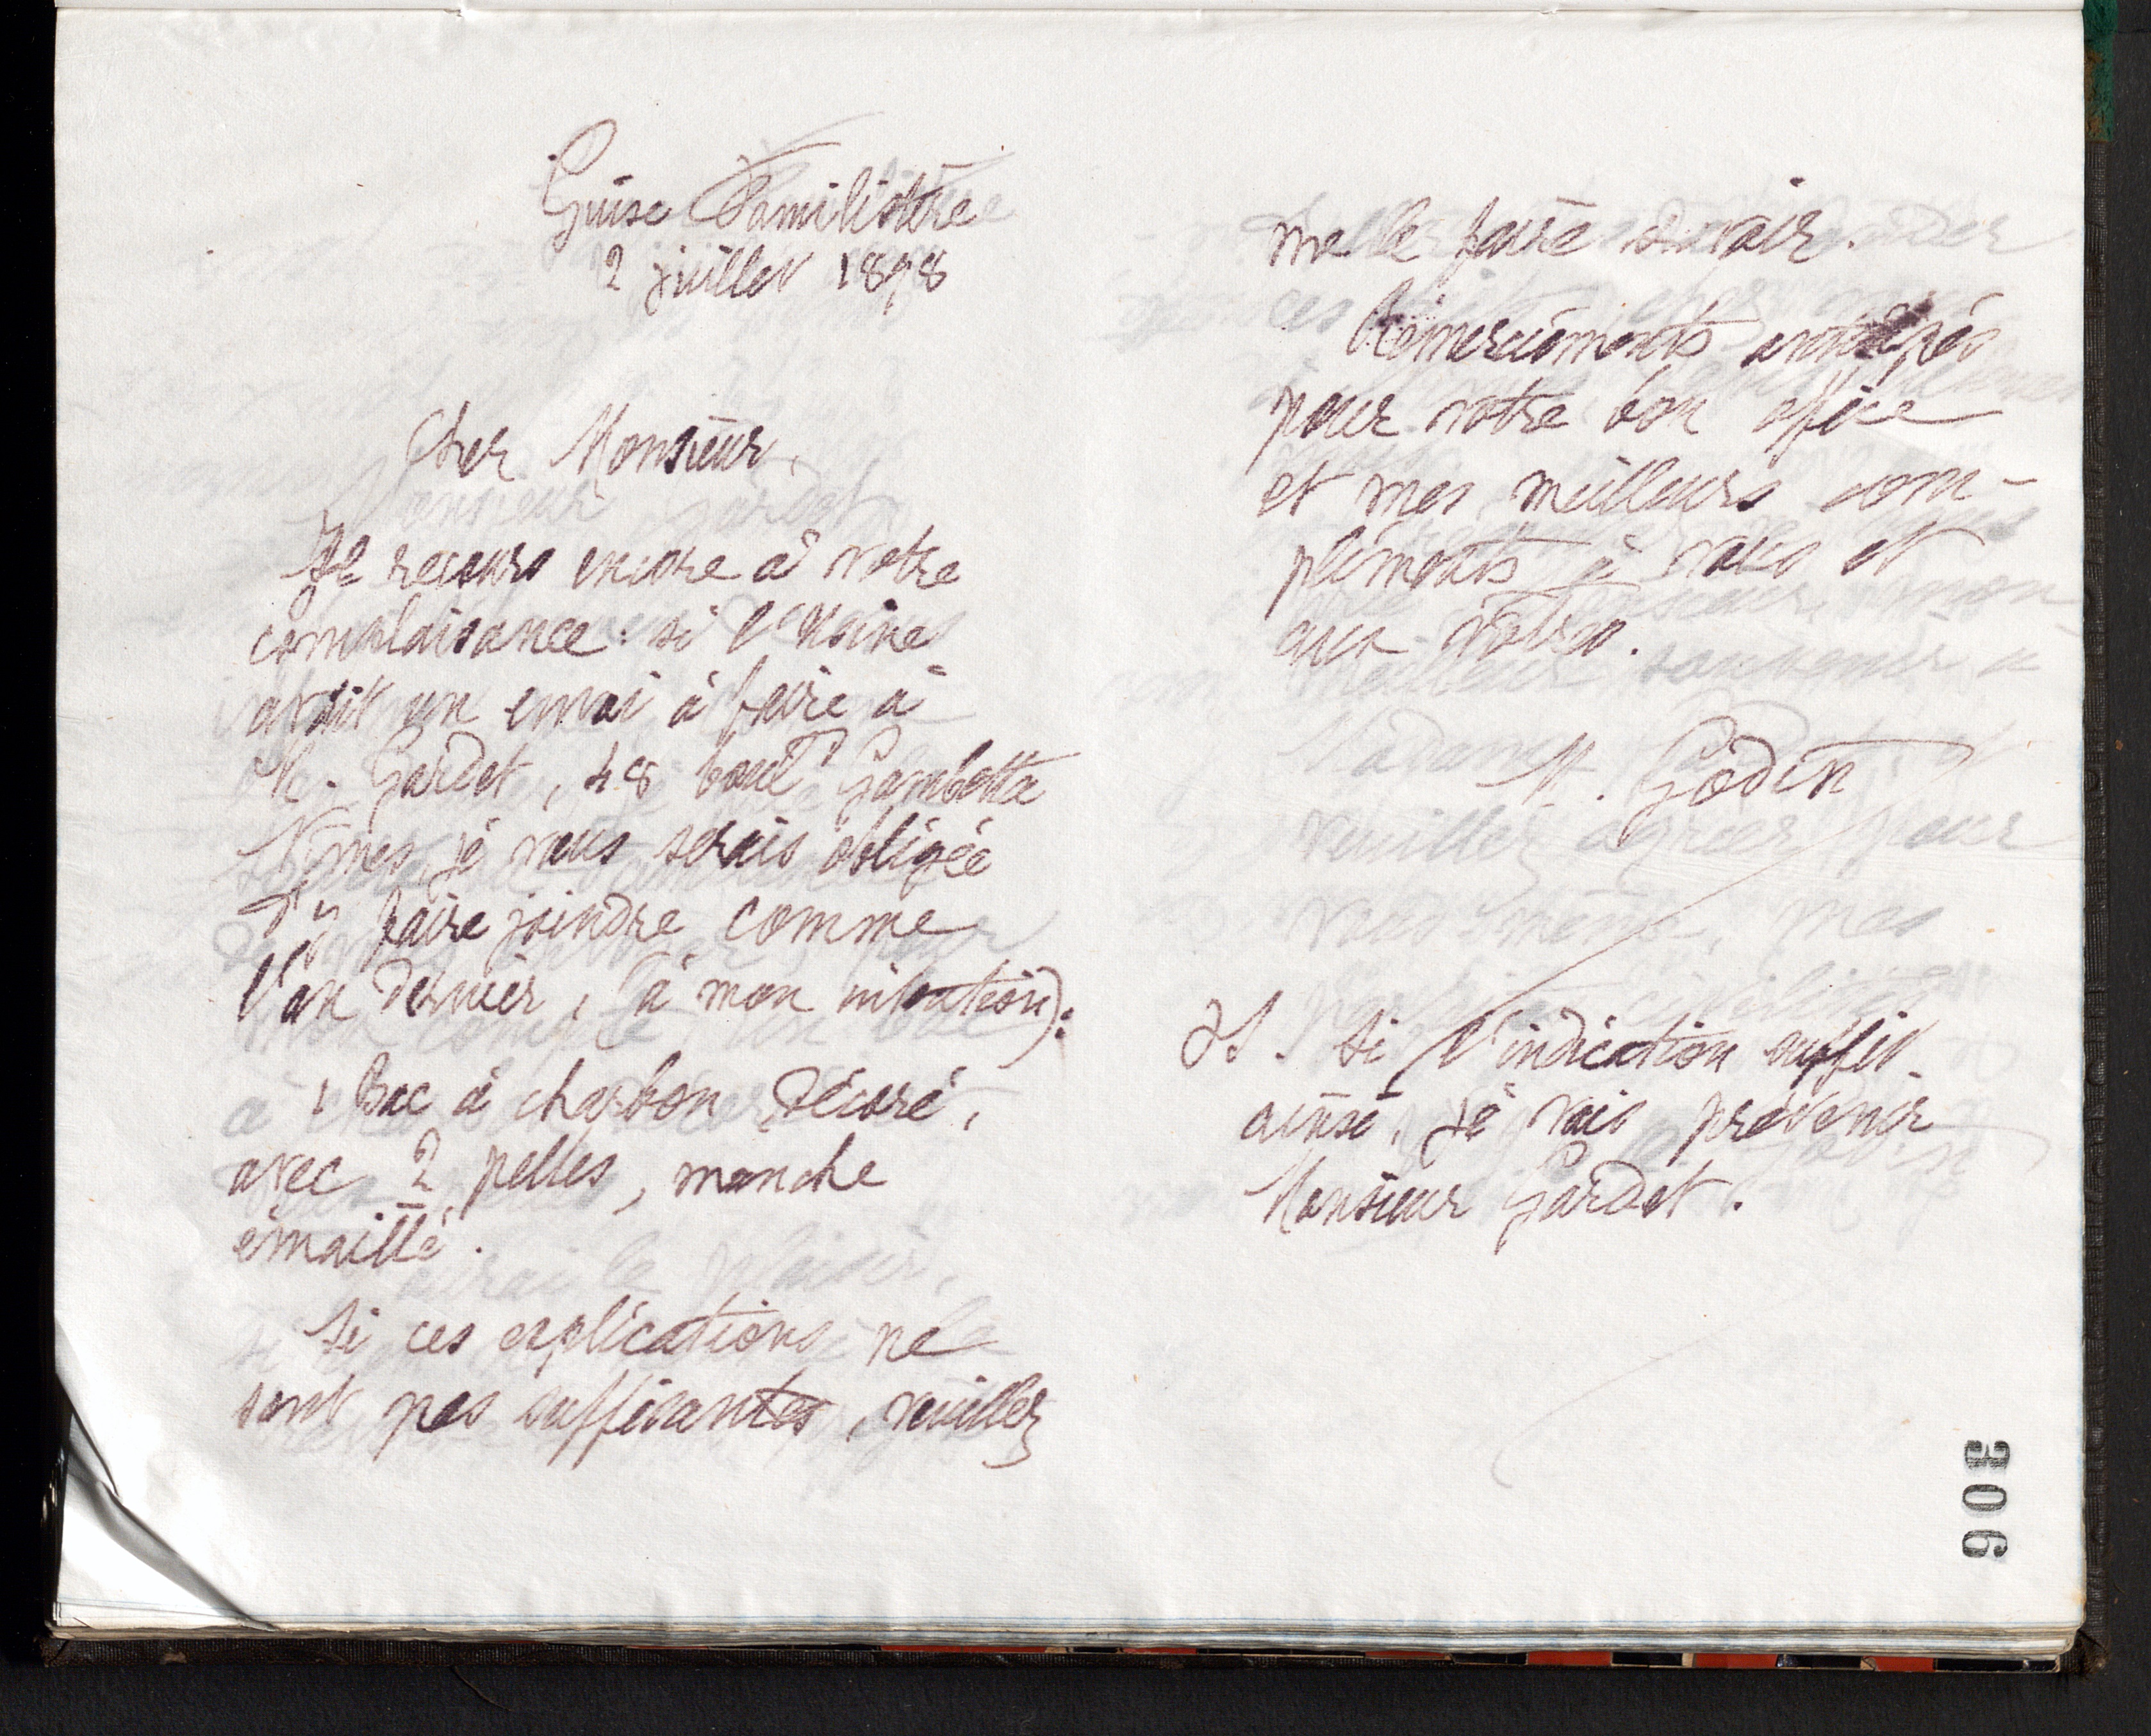 Guise Familistère
2 juillet 1898
Cher Monsieur,
Je recours encore à votre
complaisance : si l'Usine
avait un envoi à faire à
M. Gardet, 48 boul.d Gambetta
Nîmes, je vous serais obligée
d'y faire joindre comme
l'an dernier, (à mon intention) :
1 Bac à charbon, décoré,
avec 2 pelles, manche
émaillé.
Si ces explications ne
sont pas suffisantes, veuillez
me le faire savoir.
Remerciements anticipés
pour votre bon office
et mes meilleurs com-
pliments à vous et
aux vôtres.
M. Godin
PS. Si l'indication suffit
ainsi, je vais prévenir
Monsieur Gardet.
306